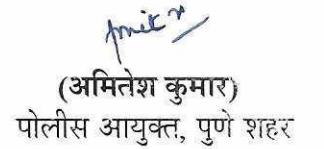 (अमितेश कुमार)
पोलीस आयुक्त, पुणे शहर